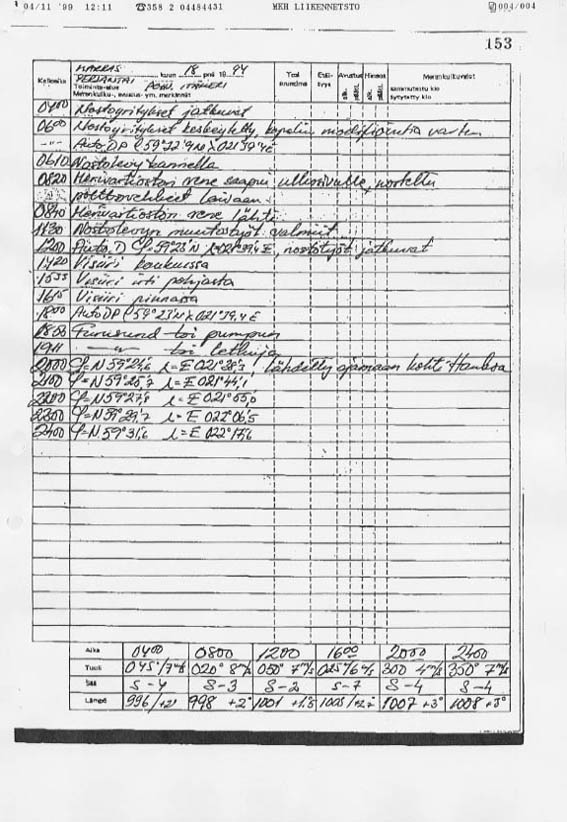 04/11 '99 12:11 ☎358 2 04484431 MKH LIIKENNETSTO 004/004
153
MARRAS kuun 18 pnä 19 94
PERJANTAI
Kellonaika Toiminta-alue POHJ. ITÄMERI
Merenkulku-, avustus- ym. merkinnät
Tuuli Esti- Avustus Hinaus Merenkulkuaidot
tyys alk. päätt. alk. päätt.
0400 Nostoyritykset jatkuvat
0600 Nostoyritykset keskeytetty, kapulin modifiointia varten
-"- Auto DP (59°22'9N 021°39'4E
0610 Nostolevy kannella
0820 Merivartioston vene saapui ulkosivulle, nostettu
polttovehkeet laivaan.
0840 Merivartioston vene lähti
1130 Nostolevyn muutostyöt valmiit
1200 Auto D φ=59°23'N λ=021°39,4 E, nostotyöt jatkuvat
1420 Visiiri koukuissa
1535 Visiiri irti pohjasta
1615 Visiiri pinnassa
1800 Auto DP (59°23'N 021°39,4E
1858 Furusund toi pumpun
1911 -"- toi letkuja
2000 φ=N 59°24,6 λ=E 021°38,7, lähdetty ajamaan kohti Hankoa
2100 φ=N 59°25,7 λ=E 021°44,1
2200 φ=N 59°27,8 λ=E 021°55,0
2300 φ=N 59°29,7 λ=E 022°06,5
2400 φ=N 59°31,6 λ=E 022°17,6
Aika 0400 0800 1200 1600 2000 2400
Tuuli 045°/7m/s 020° 8m/s 050° 7m/s 025°/6m/s 300 4m/s 350° 7m/s
Sää S-4 S-3 S-2 S-7 S-4 S-4
Lämpö 996/+2° 998 +2° 1001 +1.5 1005/+2.2 1007 +3° 1008 +3°